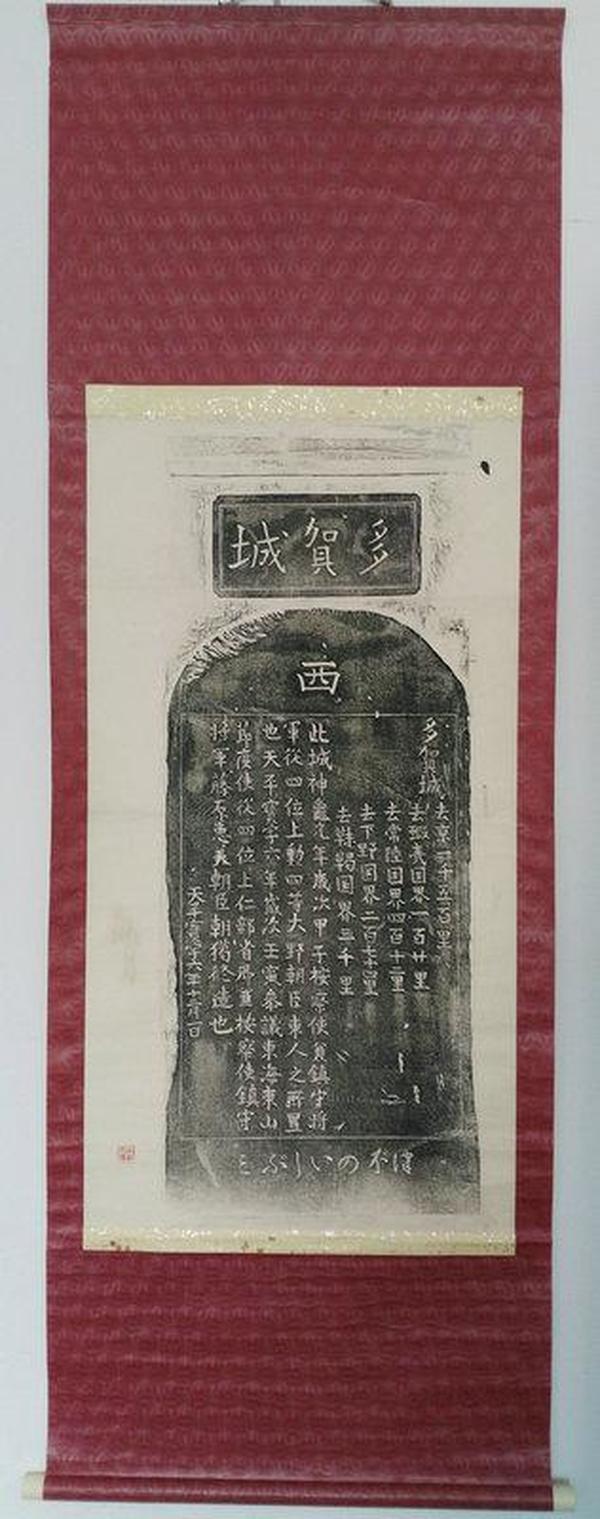 多賀城
西
多賀城
去京一千五百里
去蝦夷国界一百廿里
去常陸国界四百十二里
去下野国界二百七十四里
去靺鞨国界三千里
此城神龜元年歳次甲子按察使兼鎮守将
軍従四位上勲四等大野朝臣東人之所置
也天平寳字六年歳次壬寅参議東海東山
節度使従四位上仁部省卿兼按察使鎮守
将軍藤原恵美朝臣朝獦修造也
天平寳字六年十二月一日
のいしぶミ